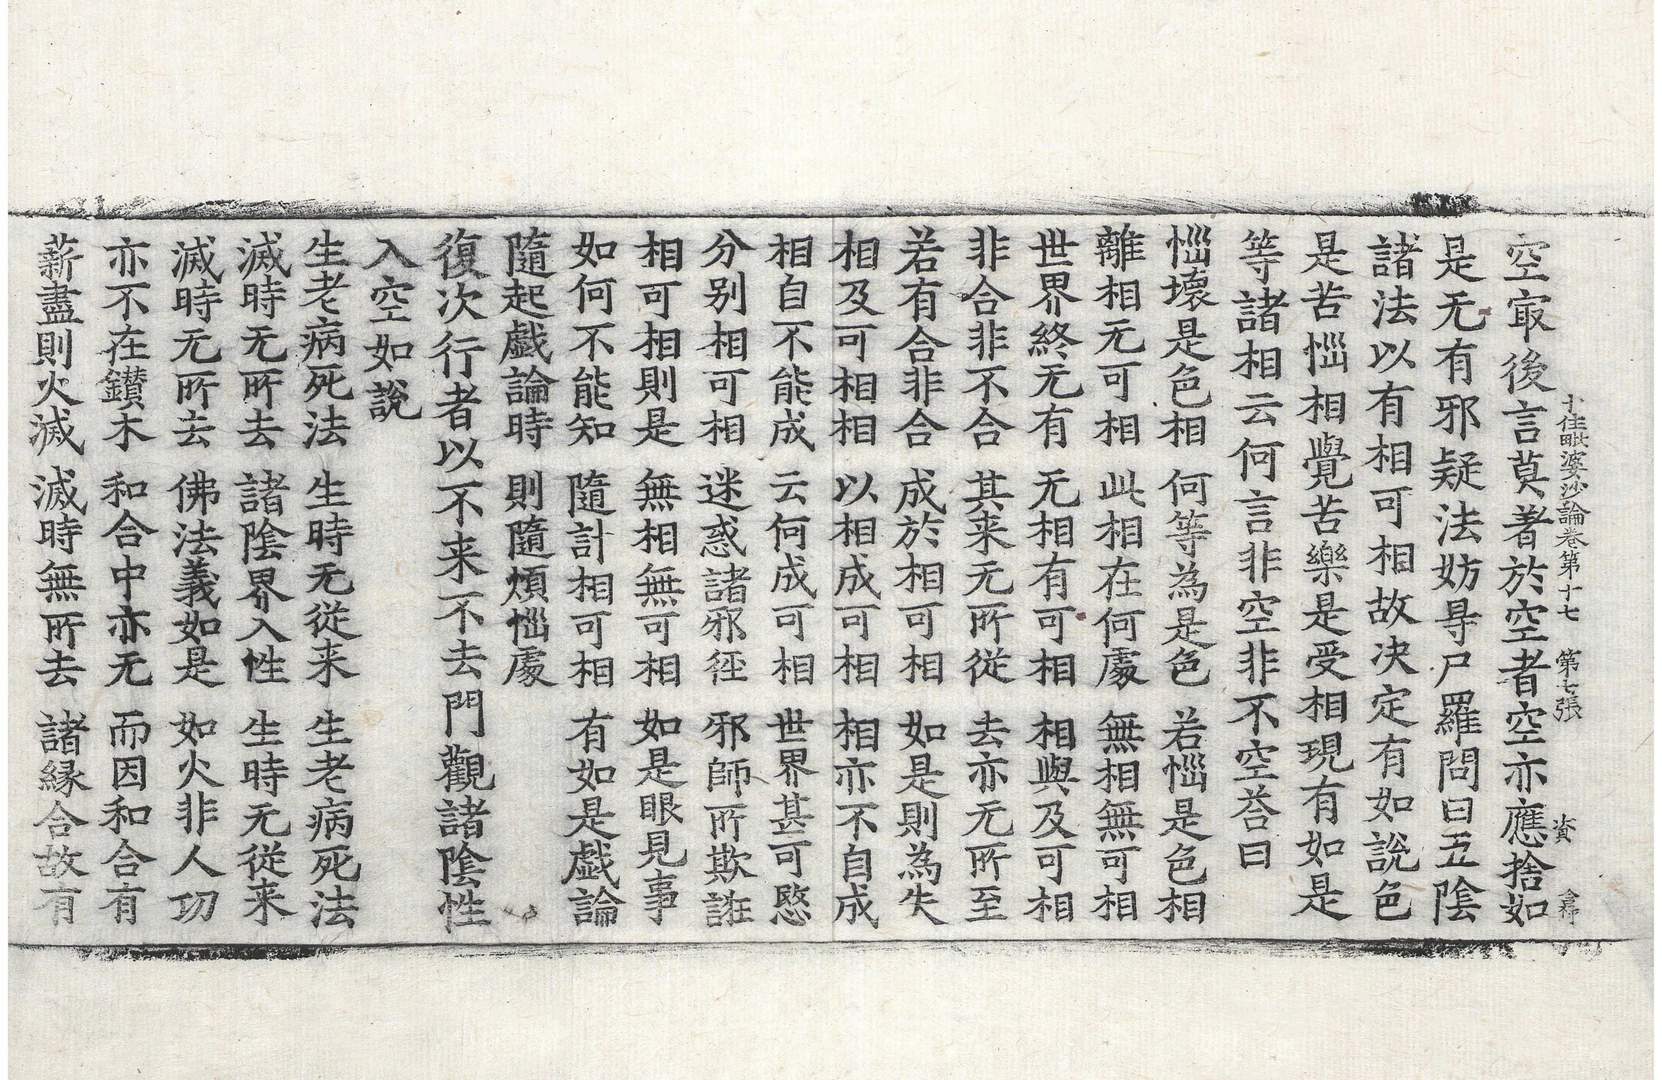 十住毗婆沙論卷第十七　第七張　資
空冣後言莫著於空者空亦應捨如
是无有邪疑法妨㝵尸羅問曰五陰
諸法以有相可相故决定有如說色
是苦惱相覺苦樂是受相現有如是
等諸相云何言非空非不空荅曰
惱壞是色相　何等為是色　若惱是色相
離相无可相　此相在何處　無相無可相
世界終无有　无相有可相　相與及可相
非合非不合　其来无所從　去亦无所至
若有合非合　成於相可相　如是則為失
相及可相相　以相成可相　相亦不自成
相自不能成　云何成可相　世界甚可愍
分别相可相　迷惑諸邪徑　邪師所欺誑
相可相則是　無相無可相　如是眼見事
如何不能知　隨計相可相　有如是戲論
隨起戲論時　則隨煩惱處
復次行者以不来不去門觀諸陰性
入空如說
生老病死法　生時无從来　生老病死法
滅時无所去　諸陰界入性　生時无從来
滅時无所去　佛法義如是　如火非人功
亦不在鑚木　和合中亦无　而因和合有
薪盡則火滅　滅時無所去　諸緣合故有